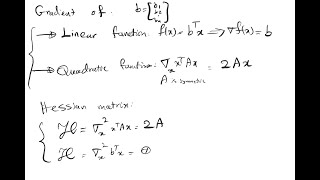 Gradient of: b = [b₁ ⋮ bₙ]
→ Linear function: f(x) = bᵀx ⟹ ∇f(x) = b
→ Quadratic function: ∇ₓ xᵀAx = 2Ax
A is symmetric
Hessian matrix:
ℋ = ∇ₓ² xᵀAx = 2A
ℋ = ∇ₓ² bᵀx =